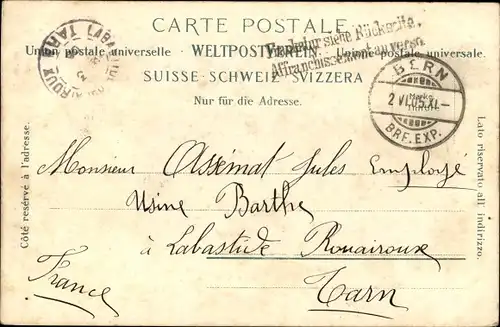 CARTE POSTALE.
Frankatur siehe Rückseite.
Affranchissement au verso.
Union postale universelle. WELTPOSTVEREIN. Unione postale universale.
SUISSE-SCHWEIZ-SVIZZERA
Nur für die Adresse.
LABASTIDE ROUAIROUX
TARN
BERN
2 VI. 05. XI.
BRF. EXP.
Côté reservé à l'adresse.
Lato riservato all' indirizzo.
Monsieur Assémat Jules Employé
Usine Barthe
à Labastide Rouairoux
France Tarn